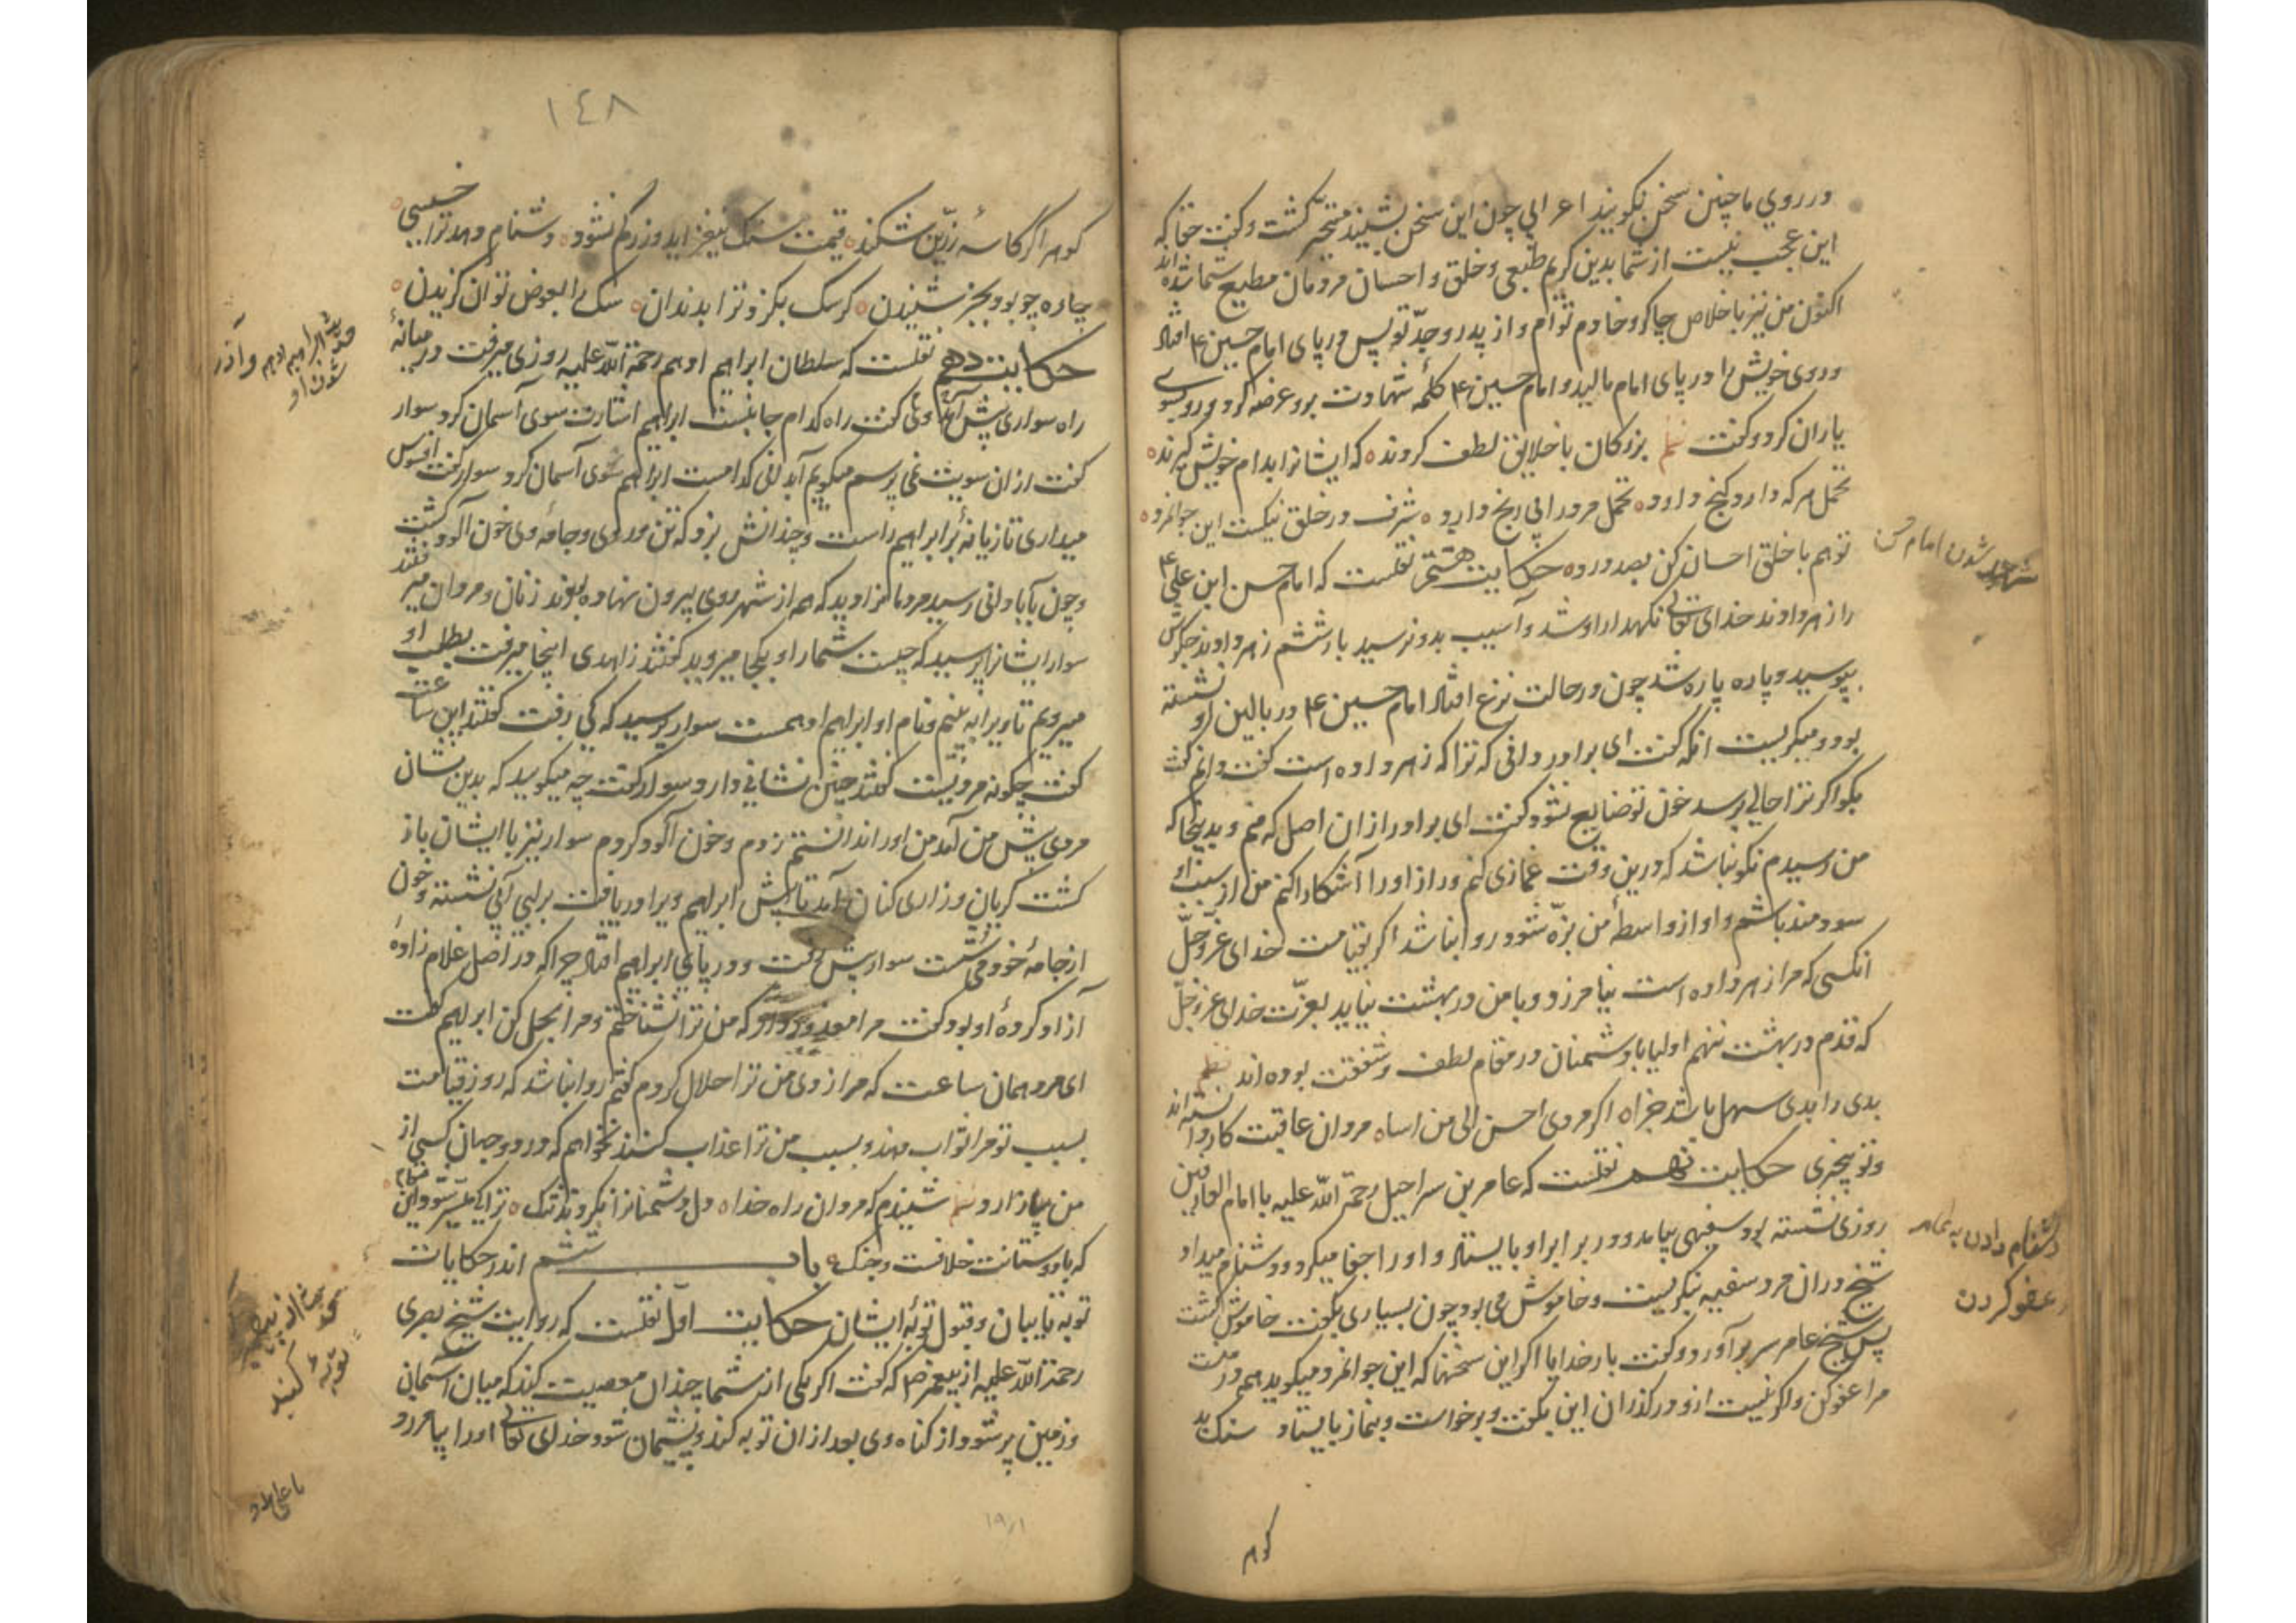 در روی ما چنین سخن نگویند اعرابی چون این سخن بشنید متحیر گشت و گفت حقا که
این عجب نیست از شما بدین کریم طبعی و خلق و احسان مردمان مطیع شما شده اند
اکنون من نیز باخلاص چاکر و خادم توام و از پدر و جد تو پس در پای امام حسین ع افتاد
و روی خویش را در پای امام مالید و امام حسین ع کلمه شهادت برو عرضه کرد و رو بسوی
یاران کرد و گفت نظم بزرگان با خلایق لطف کردند که ایشانرا بدام خویش گیرند
تحمل هر که دارد گنج دارد تحمل مرد رانی رنج دارد شرف در خلق نیکست این جوانمرد
تو هم با خلق احسان کن بصد درد حکایت هشتم نقلست که امام حسن ابن علی ع
را زهر دادند خدای تعالی نگهدار او شد و آسیب بدو نرسید بار ششم زهر دادند جگرش
بپوسید و پاره پاره شد چون در حالت نزع افتاد امام حسین ع در بالین او نشسته
بود و میگریست انگه گفت ای برادر دانی که ترا که زهر داده است گفت دانم گفت
بگو اگر ترا حالی رسد خون تو ضایع نشود گفت ای برادر از ان اصل که منم و بدینجا که
من رسیدم نکو نباشد که درین وقت غمازی کنم و راز او را آشکارا کنم من از سبب او
سودمند باشم و او از واسطهٔ من بزه شود روا نباشد اگر بقیامت خدای عز و جل
انکسی که مرا زهر داده است نیامرزد و با من در بهشت نیاید بعزت خدای عز و جل
که قدم در بهشت ننهم اولیا با دشمنان در مقام لطف و شفقت بوده اند نظم
بدی را بدی سهل باشد جزاه اگر مردی احسن الی من اساه مردان عاقبت کار دانسته اند
و تو بیخبری حکایت نهم نقلست که عامر بن سراحیل رحمة الله علیه با امام العارفین
روزی نشسته بود سفیهی بیامد و در برابر او بایستاد و او را جفا میکرد و دشنام میداد
شیخ در ان مرد سفیه نگریست و خاموش می بود چون بسیاری بگفت خاموش گشت
پس شیخ عامر سر برآورد و گفت بار خدایا اگر این سخنها که این جوانمرد میگوید همه در منست
مرا عفو کن و اگر نیست ازو درگذران این بگفت و برخواست و بنماز بایستاد سنگ بد
گوهر
شهید شدن امام حسن
دشنام دادن به عامر
و عفو کردن
١٤٨
گوهر اگر کاسهٔ زرین شکند قیمت سنگ نیفزاید و زر کم نشود دشنام دهد ترا خسیسی
چاره چو بود بجز شنیدن گر سگ بگزد ترا بدندان سگ را بعوض توان گزیدن
حکایت دهم نقلست که سلطان ابراهیم ادهم رحمة الله علیه روزی میرفت در میانهٔ
راه سواری پیش آمد وی گفت راه کدام جانبست ابراهیم اشارت سوی آسمان کرد سوار
گفت ازان سویت نمی پرسم میگویم آبدانی کدامست ابراهیم سوی آسمان کرد سوار گفت افسوس
میداری تازیانهٔ بر ابراهیم راست و چندانش بزد که تن و روی و جامهٔ وی خون آلود گشت
و چون بآبادانی رسید مردمانرا دید که هم از شهر روی بیرون نهاده بودند زنان و مردان میرفتند
سوار ایشانرا پرسید که چیست شما را و بکجا میروید گفتند زاهدی اینجا میرفت بطلب او
میرویم تا ویرا به بینیم و نام او ابراهیم ادهمست سوار پرسید که کی رفت گفتند این ساعت
گفت چگونه مردیست گفتند چنین نشانی دارد سوار گفت چه میگویید که بدین نشان
مردی پیش من آمد من او را ندانستم زدم و خون آلود کردم سوار نیز با ایشان باز
گشت گریان و زاری کنان آمد تا پیش ابراهیم ویرا دریافت بر لب آبی نشسته و خون
از جامهٔ خود می شست سوار پیش رفت و در پای ابراهیم افتاد چرا که در اصل غلام زادهٔ
آزاد کردهٔ او بود گفت مرا معذور دار که من ترا نشناختم و مرا بحل کن ابراهیم گفت
ای مرد همان ساعت که مرا زدی من ترا حلال کردم گفتم روا نباشد که روز قیامت
بسبب تو مرا ثواب دهند و بسبب من ترا عذاب کنند نخواهم که در دو جهان کسی از
من بیازارد نظم شنیدم که مردان راه خدا دل دشمنانرا نکردند تنگ ترا کی میسر شود این مقام
که با دوستانت خلافست و جنگ باب ششم اندر حکایات
توبه تایبان و قبول توبهٔ ایشان حکایت اول نقلست که روایت شیخ بصری
رحمة الله علیه از پیغمبر ص که گفت اگر یکی از شما چندان معصیت کند که میان آسمان
و زمین پر شود از گناه وی بعد از ان توبه کند و پشیمان شود خدای تعالی او را بیامرزد
ابراهیم ادهم و آذر
شدن او
توبهٔ کنید
١٩٨١